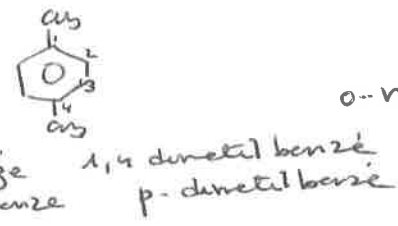 CH3
1
2
3
4
CH3
o--
1,4 dimetil benzé
p- dimetil benzé